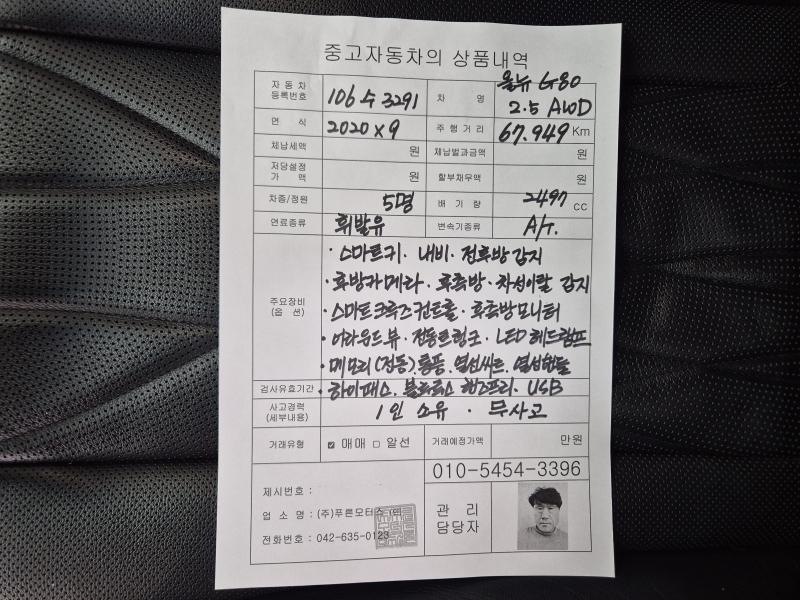 중고자동차의 상품내역
자동차 등록번호 106수3291 차 명 올뉴 G80 2.5 AWD
연 식 2020 x 9 주행거리 67.949 Km
체납세액 원 체납벌과금액 원
저당설정 가 액 원 할부채무액 원
차종/정원 5명 배 기 량 2497 CC
연료종류 휘발유 변속기종류 A/T.
주요장비 (옵 션)
· 스마트키 · 내비 · 전후방 감지
· 후방카메라 · 후측방 · 차선이탈 감지
· 스마트크루즈컨트롤 · 후측방모니터
· 어라운드뷰 · 전동트렁크 · LED 헤드램프
· 메모리(전동).통풍.열선씨트.열선핸들
검사유효기간 · 하이패스. 블루투스 핸즈프리. USB
사고경력 (세부내용) 1인 소유 · 무사고
거래유형 ☑ 매매 □ 알선 거래예정가액 만원
010-5454-3396
제시번호 :
업 소 명 : (주)푸른모터스
전화번호 : 042-635-0123
관 리 담당자